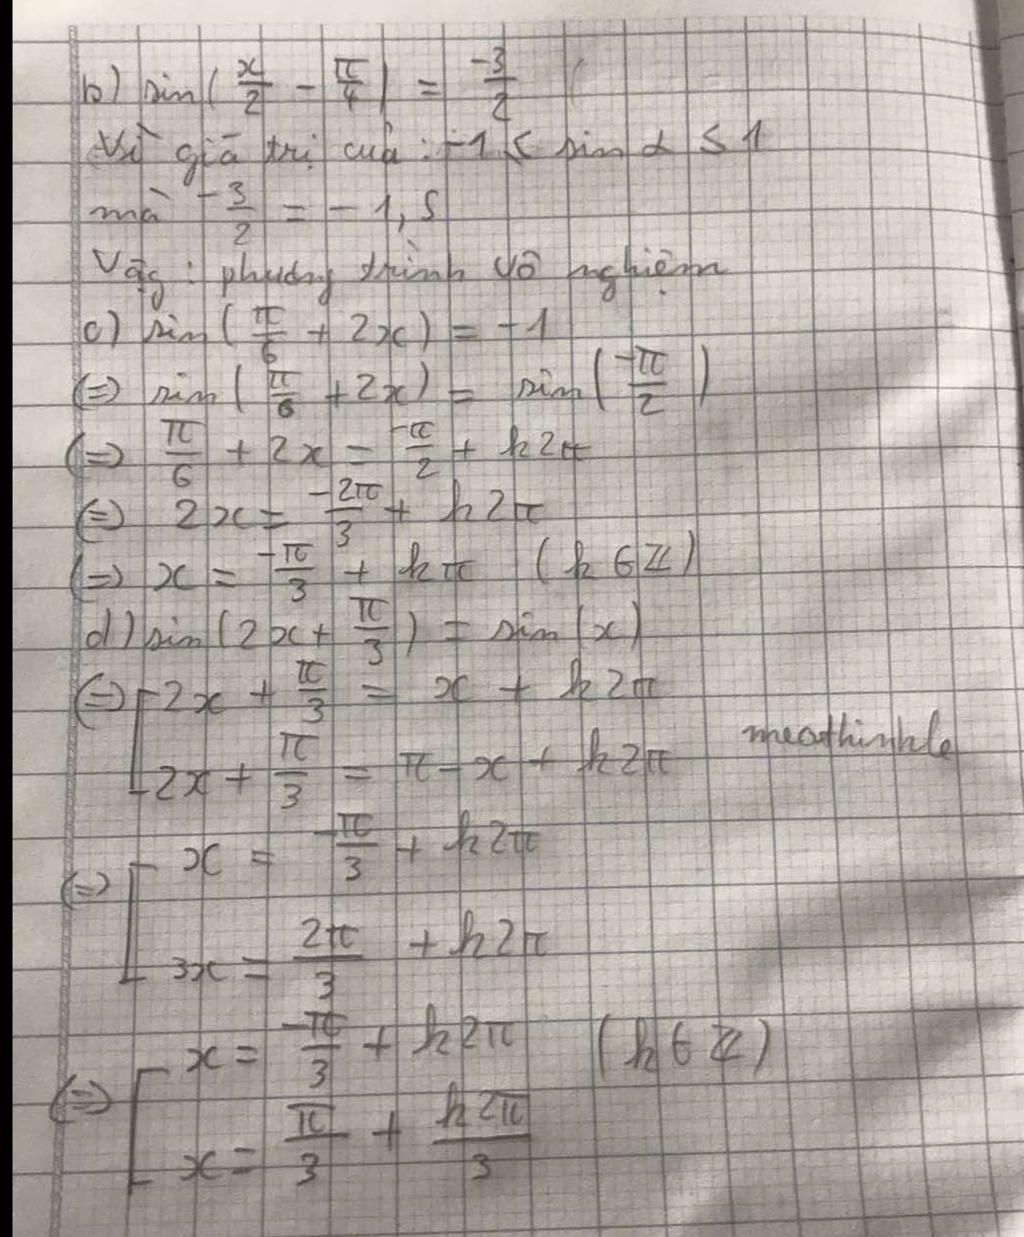 b) sin(x/2 - π/4) = -3/2
Vì giá trị của: -1 ≤ sin α ≤ 1
mà -3/2 = -1,5
Vậy: phương trình vô nghiệm
c) sin(π/6 + 2x) = -1
(=) sin(π/6 + 2x) = sin(-π/2)
(=) π/6 + 2x = -π/2 + k2π
(=) 2x = -2π/3 + k2π
(=) x = -π/3 + kπ (k ∈ Z)
d) sin(2x + π/3) = sin(x)
(=) [ 2x + π/3 = x + k2π
2x + π/3 = π - x + k2π
(=) [ x = -π/3 + k2π
3x = 2π/3 + k2π
(=) [ x = -π/3 + k2π (k ∈ Z)
x = π/3 + k2π/3